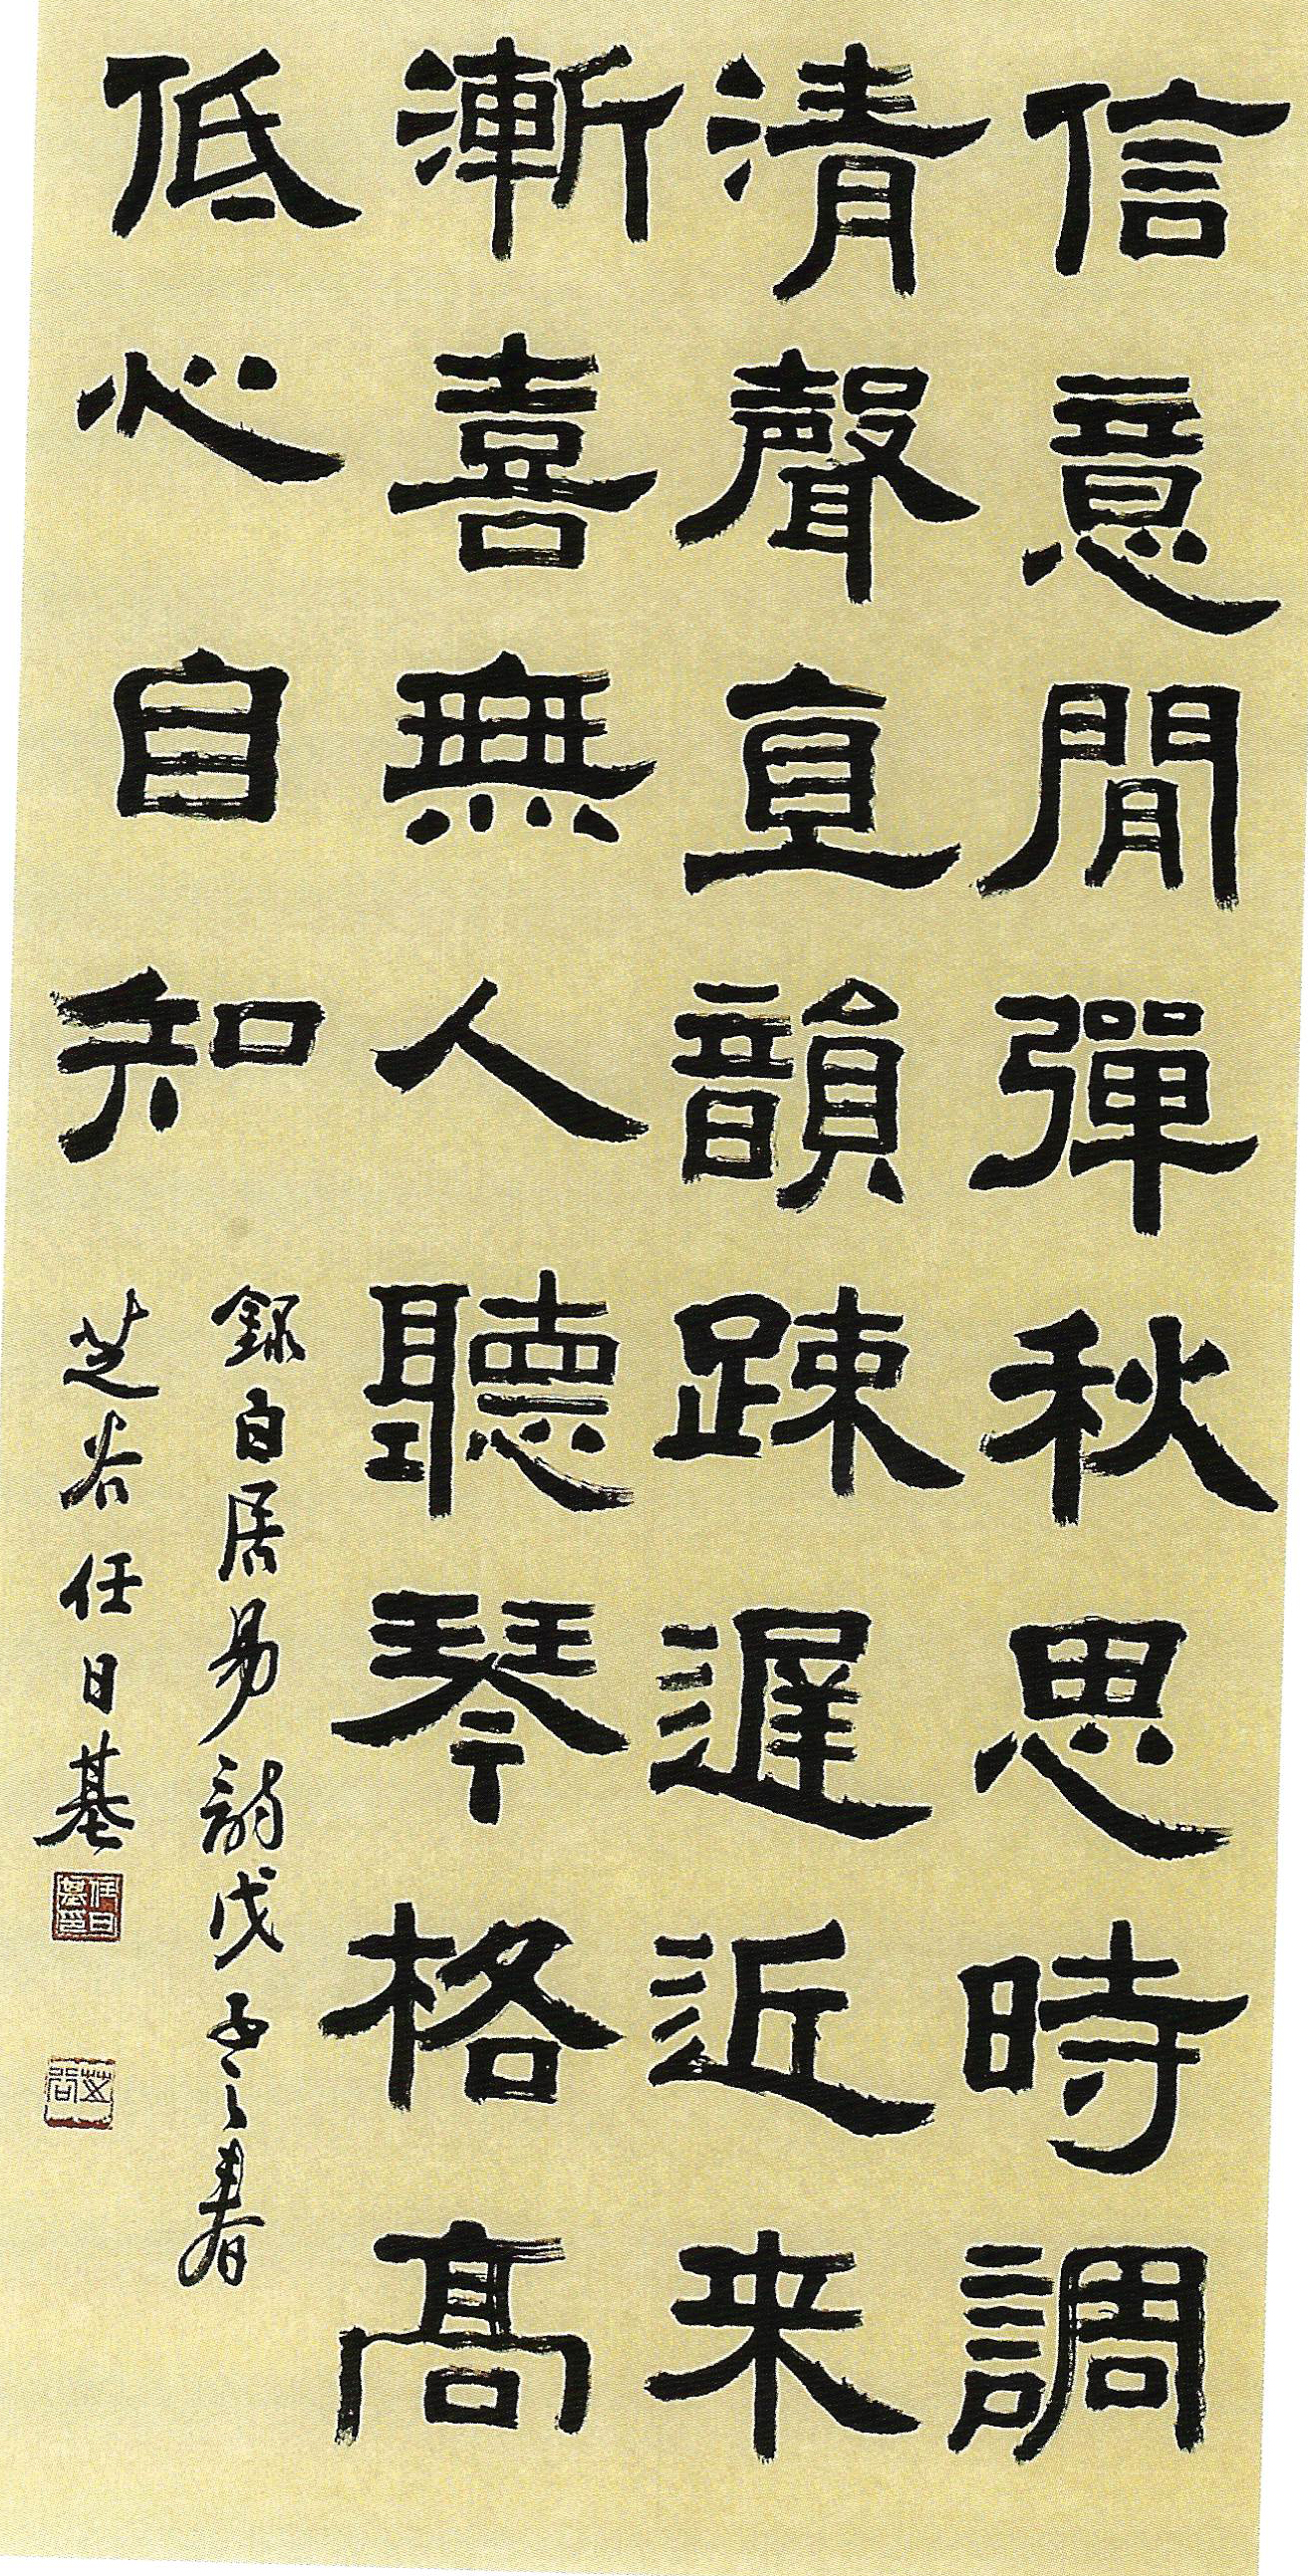 信意閒彈秋思時調
清聲直韻踈遲近来
漸喜無人聽琴格高
低心自知
錄白居易詩戊子之春
芝谷任日基
任日基印
芝谷